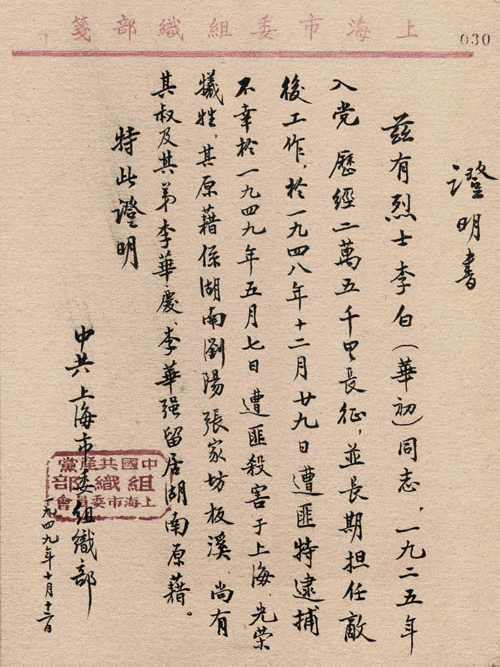 上海市委組織部箋
030
證明書
茲有烈士李白(華初)同志,一九二五年
入党 歷經二萬五千里長征,並長期担任敵
後工作,於一九四八年十二月廿九日遭匪特逮捕
不幸於一九四九年五月七日遭匪殺害于上海,光荣
犧牲,其原藉係湖南瀏陽張家坊板溪 尚有
其叔及其弟李華慶、李華强留居湖南原藉。
特此證明
中共上海市委組織部
中國共産黨
組織部
上海市委員會
一九四九年十月十日